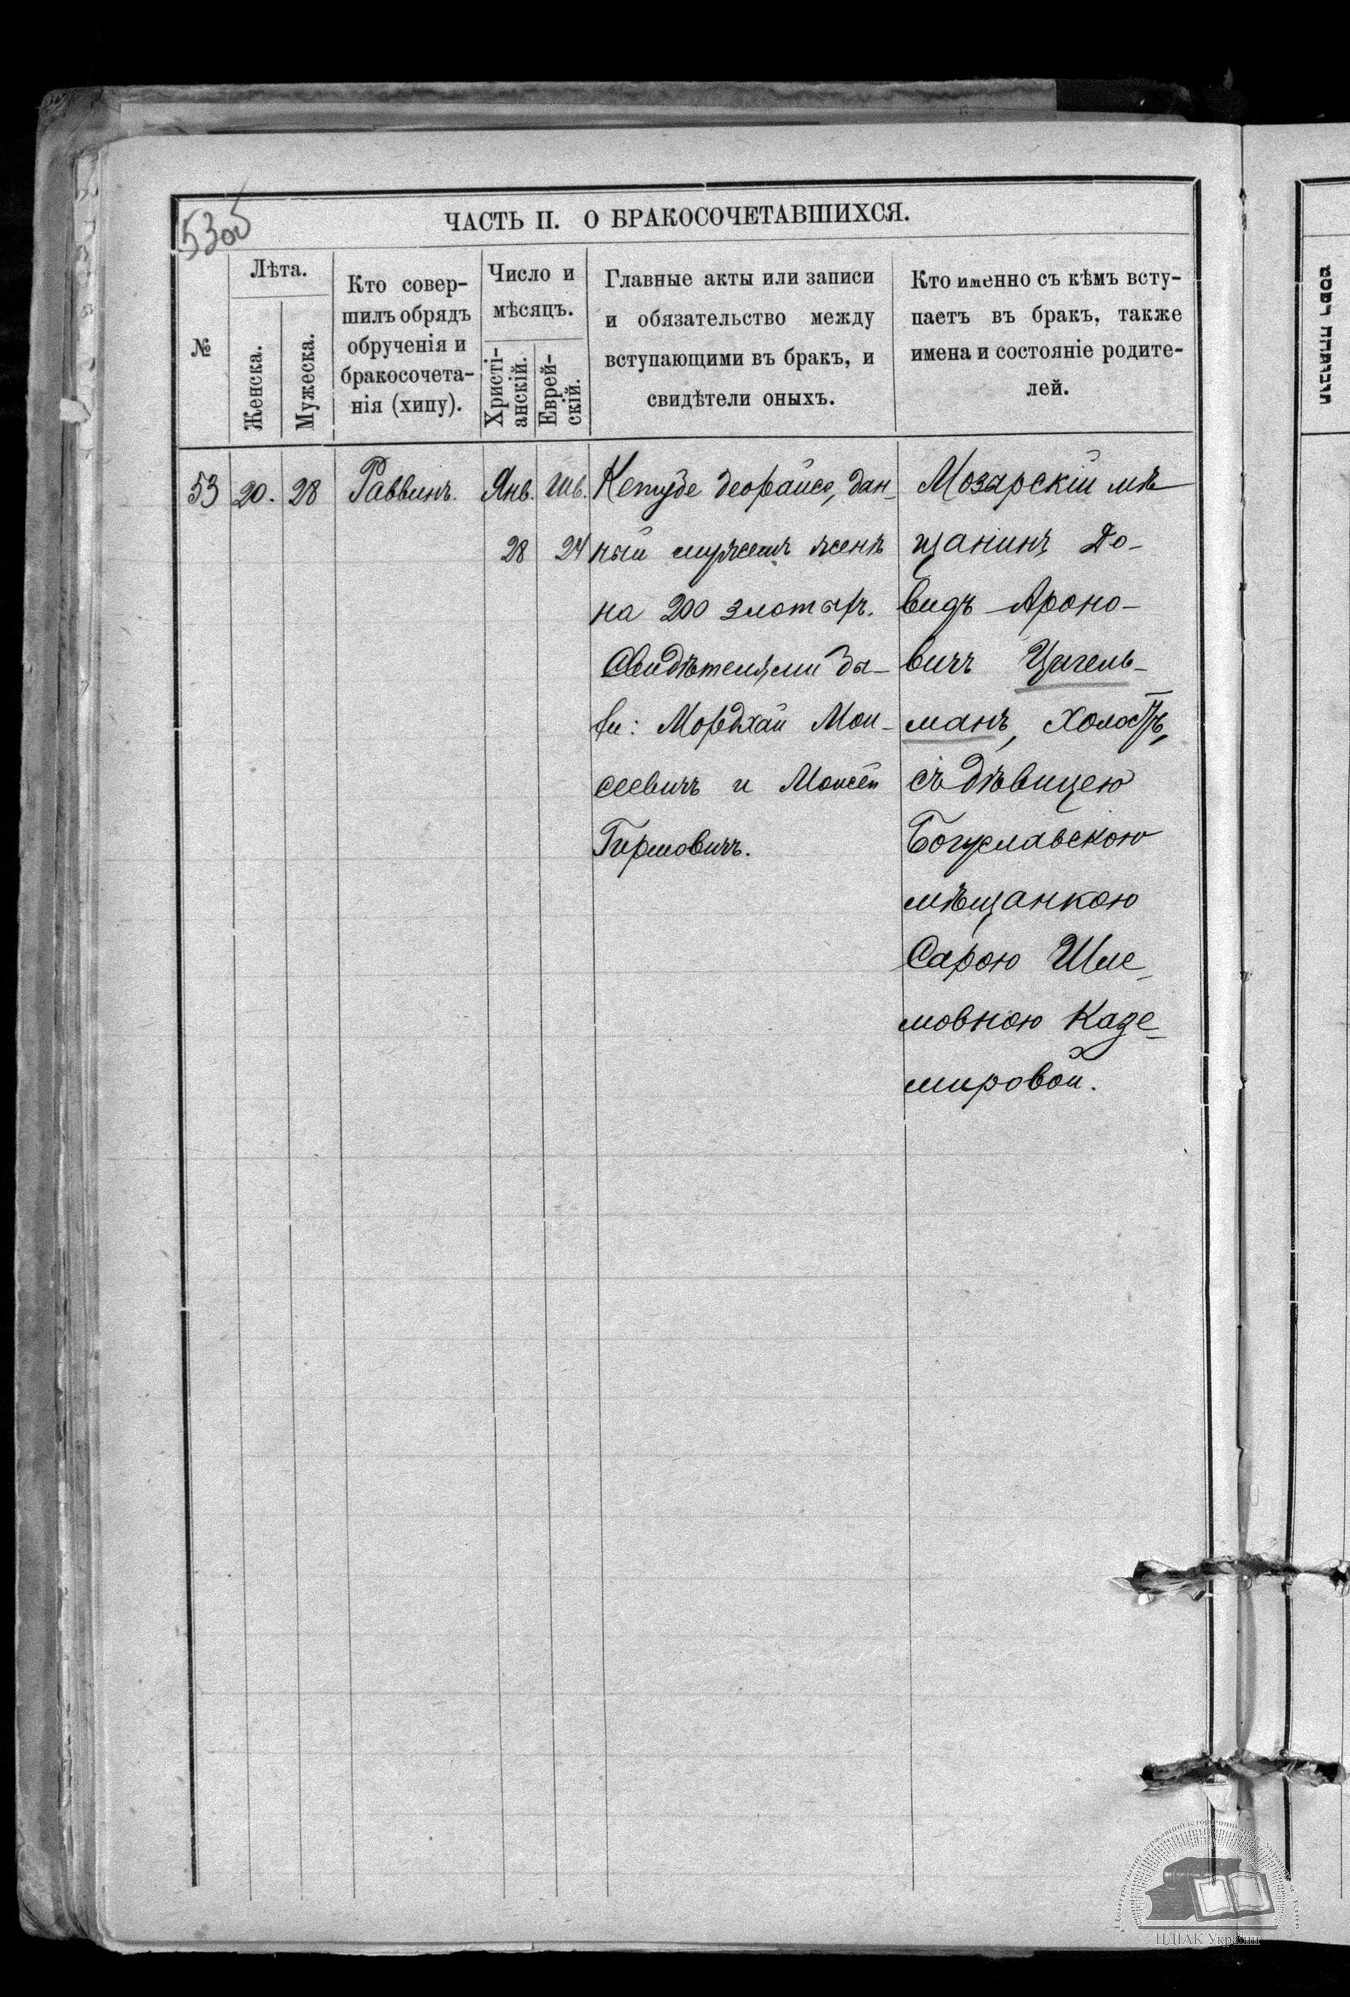 53об
ЧАСТЬ II. О БРАКОСОЧЕТАВШИХСЯ.
№
Лѣта.
Женска.
Мужеска.
Кто совер-
шилъ обрядъ
обрученія и
бракосочета-
нія (хипу).
Число и
мѣсяцъ.
Христі-
анскій.
Еврей-
скій.
Главные акты или записи
и обязательство между
вступающими въ бракъ, и
свидѣтели оныхъ.
Кто именно съ кѣмъ всту-
паетъ въ бракъ, также
имена и состояніе родите-
лей.
53
20.
28
Раввинъ.
Янв.
28
Шв.
24
Кетубе деорайсе, дан-
ный мужемъ женѣ
на 200 злотыхъ.
Свидѣтелями бы-
ли: Мордхай Мои-
сеевичъ и Моисей
Гиршовичъ.
Мозарскій мѣ
щанинъ До-
видъ Ароно-
вичъ Цигель-
манъ, холостъ,
съ дѣвицею
Богуславскою
мѣщанкою
Сарою Шле-
мовною Казе-
мировой.
ЦДІАК України